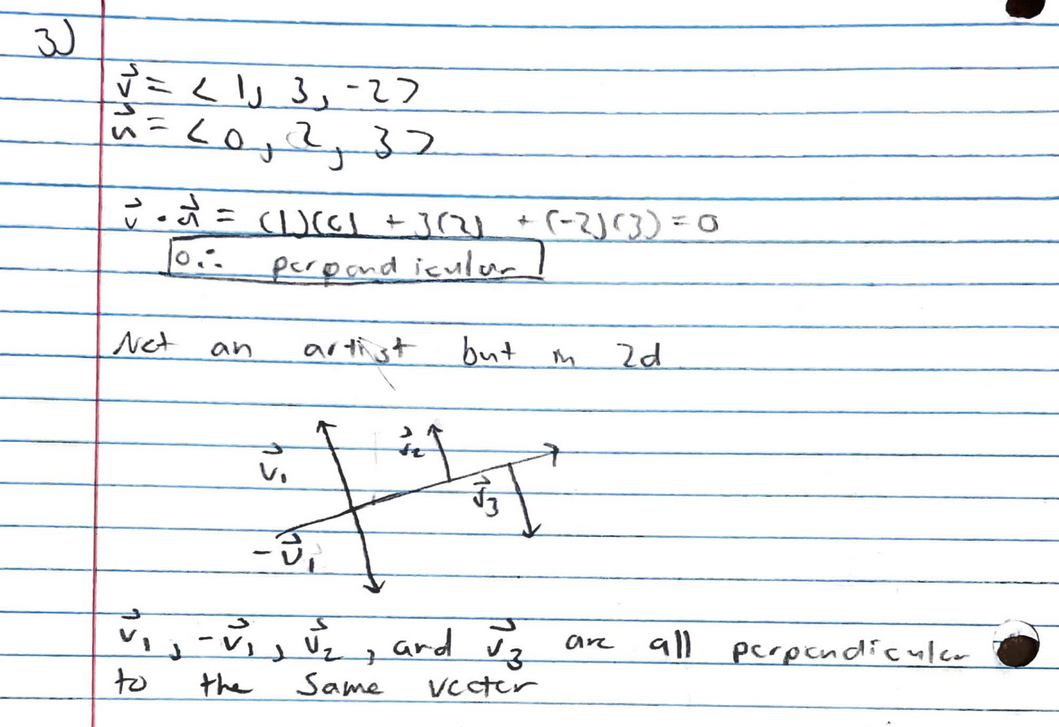 3)
v⃗ = < 1, 3, -2 >
u⃗ = < 0, 2, 3 >
v⃗ · u⃗ = (1)(0) + 3(2) + (-2)(3) = 0
0 ∴ perpendicular
Not an artist but in 2d
v⃗₁ v⃗₂
v⃗₃
-v⃗₁
v⃗₁, -v⃗₁, v⃗₂, and v⃗₃ are all perpendicular
to the same vector